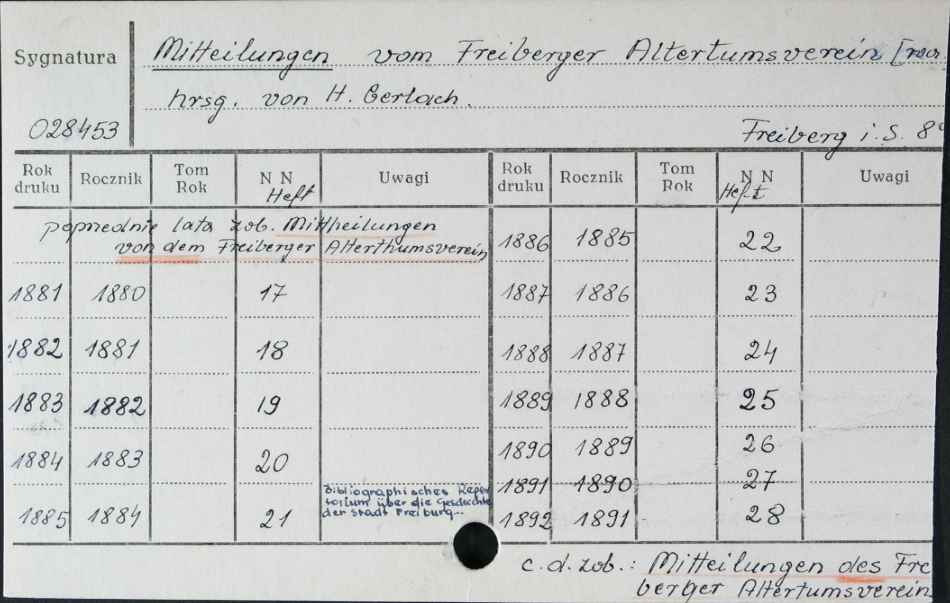 Sygnatura
Mitteilungen vom Freiberger Altertumsverein
hrsg. von H. Gerlach.
028453
Freiberg i. S. 8°
Rok druku Rocznik Tom Rok N N Heft Uwagi Rok druku Rocznik Tom Rok N N Heft Uwagi
poprzednie lata zob. Mittheilungen
von dem Freiberger Alterthumsverein
1886 1885 22
1881 1880 17
1887 1886 23
1882 1881 18
1888 1887 24
1883 1882 19
1889 1888 25
1884 1883 20
1890 1889 26
1891 1890 27
Bibliographisches Reper
torium über die Geschichte
der Stadt Freiburg...
1885 1884 21
1892 1891 28
c.d. zob.: Mitteilungen des Fre
berger Altertumsverein